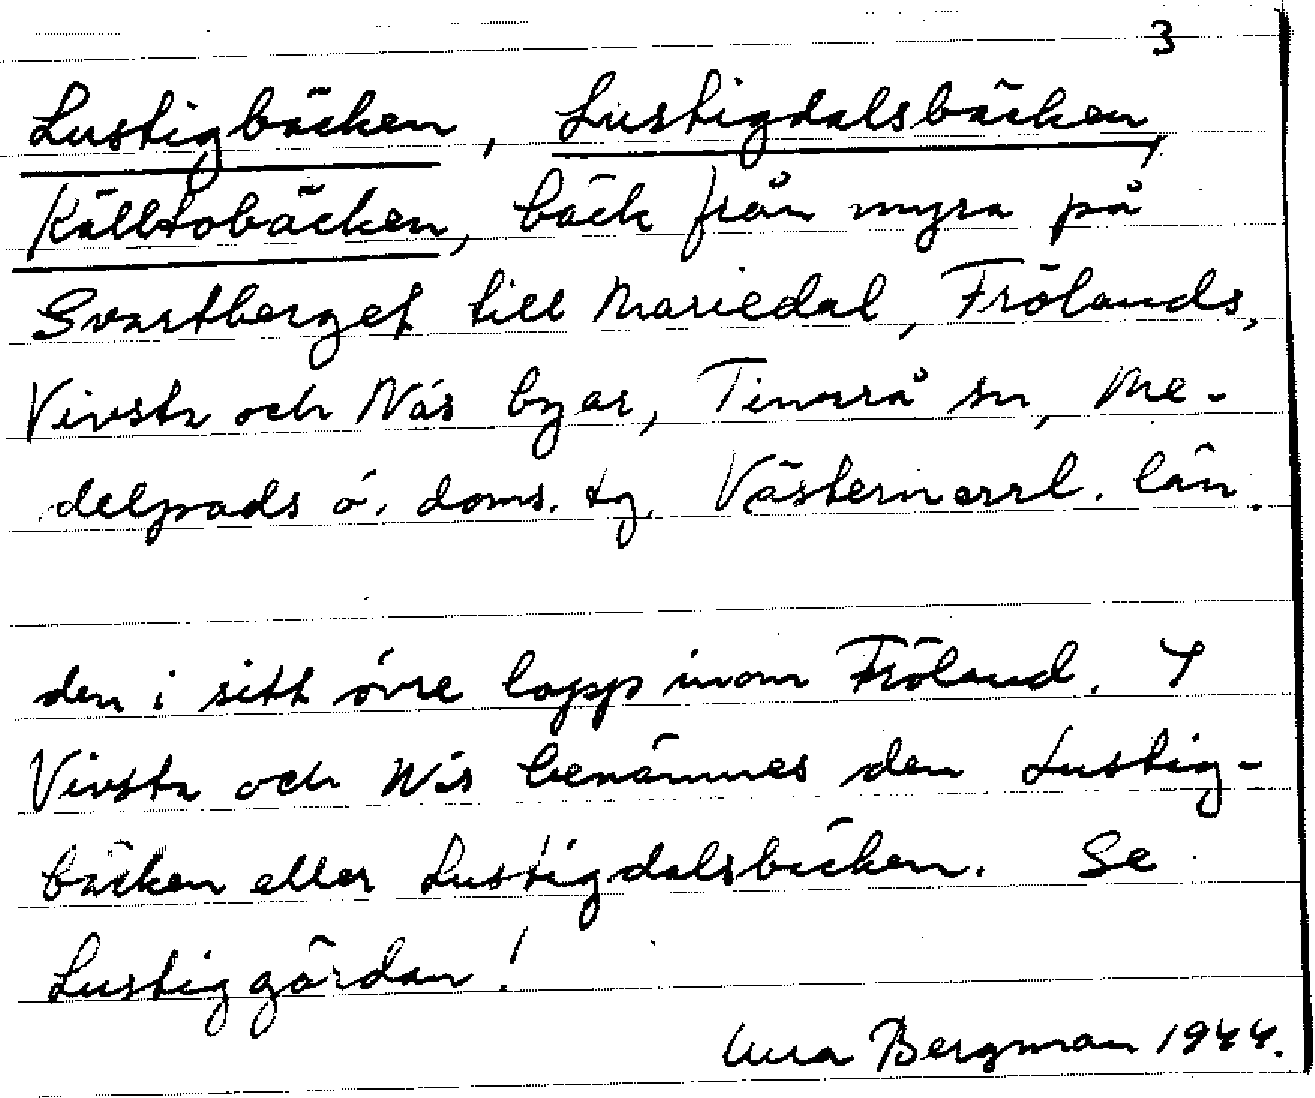 3
Lustigbäcken, Lustigdalsbäcken,
Källtobäcken, bäck från myra på
Svartberget till Mariedal, Frölands,
Vivsta och Näs byar, Timrå sn, Me-
delpads ö. doms. tg, Västernorrl. län.
den i sitt övre lopp inom Fröland. I
Vivsta och Näs benämnes den Lustig-
bäcken eller Lustigdalsbäcken. Se
Lustiggärdan!
Bergman 1944.